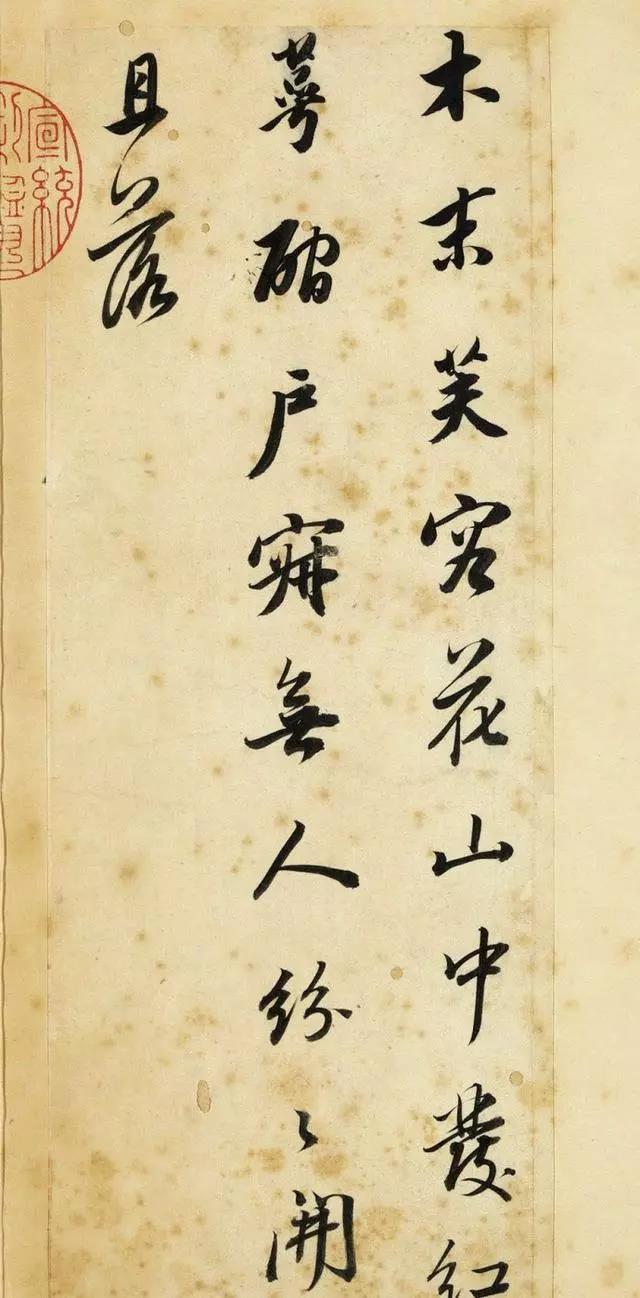 木末芙容花山中發紅
萼磵戶寂無人紛〻開
且落
宣統